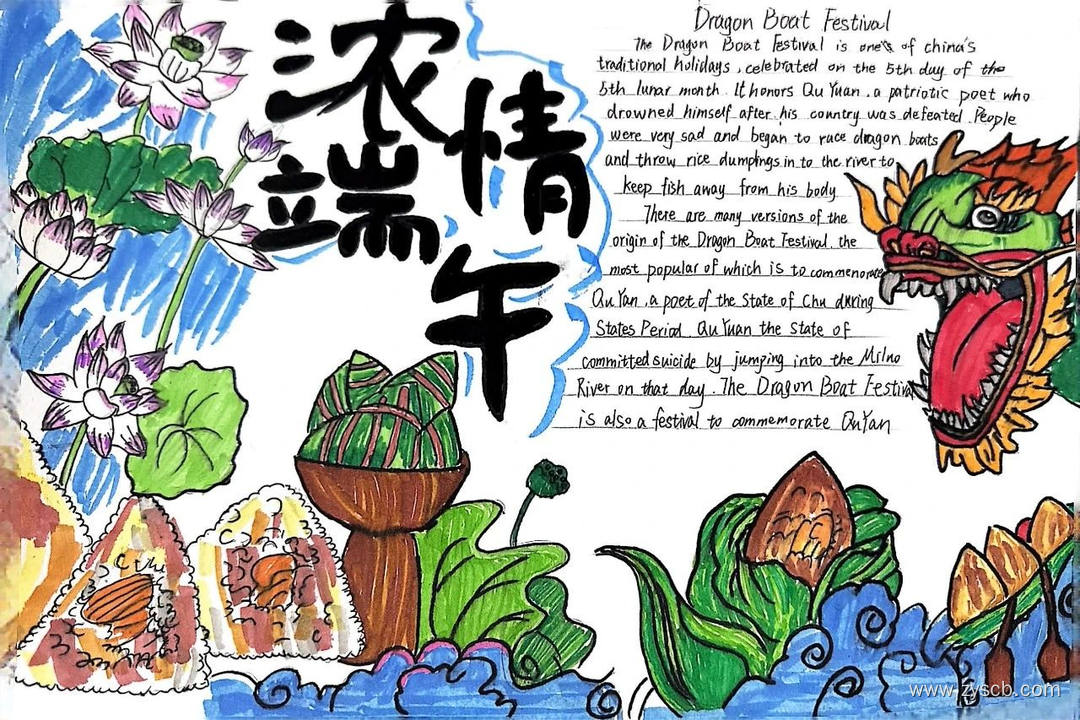 浓情
端午
Dragon Boat Festival
The Dragon Boat Festival is one's of china's
traditional holidays , celebrated on the 5th day of the
5th lunar month . It honors Qu Yuan . a patriotic poet who
drowned himself after his country was defeated . People
were very sad and began to race dragon boats
and throw rice dumplings in to the river to
keep fish away from his body
There are many versions of the
origin of the Dragon Boat Festival . the
most popular of which is to commemorate
Qu Yan , a poet of the State of Chu during
States Period . Qu Yuan the State of
committed suicide by jumping into the Milno
River on that day . The Dragon Boat Festival
is also a festival to commemorate Qu Yan
www.zyscb.com